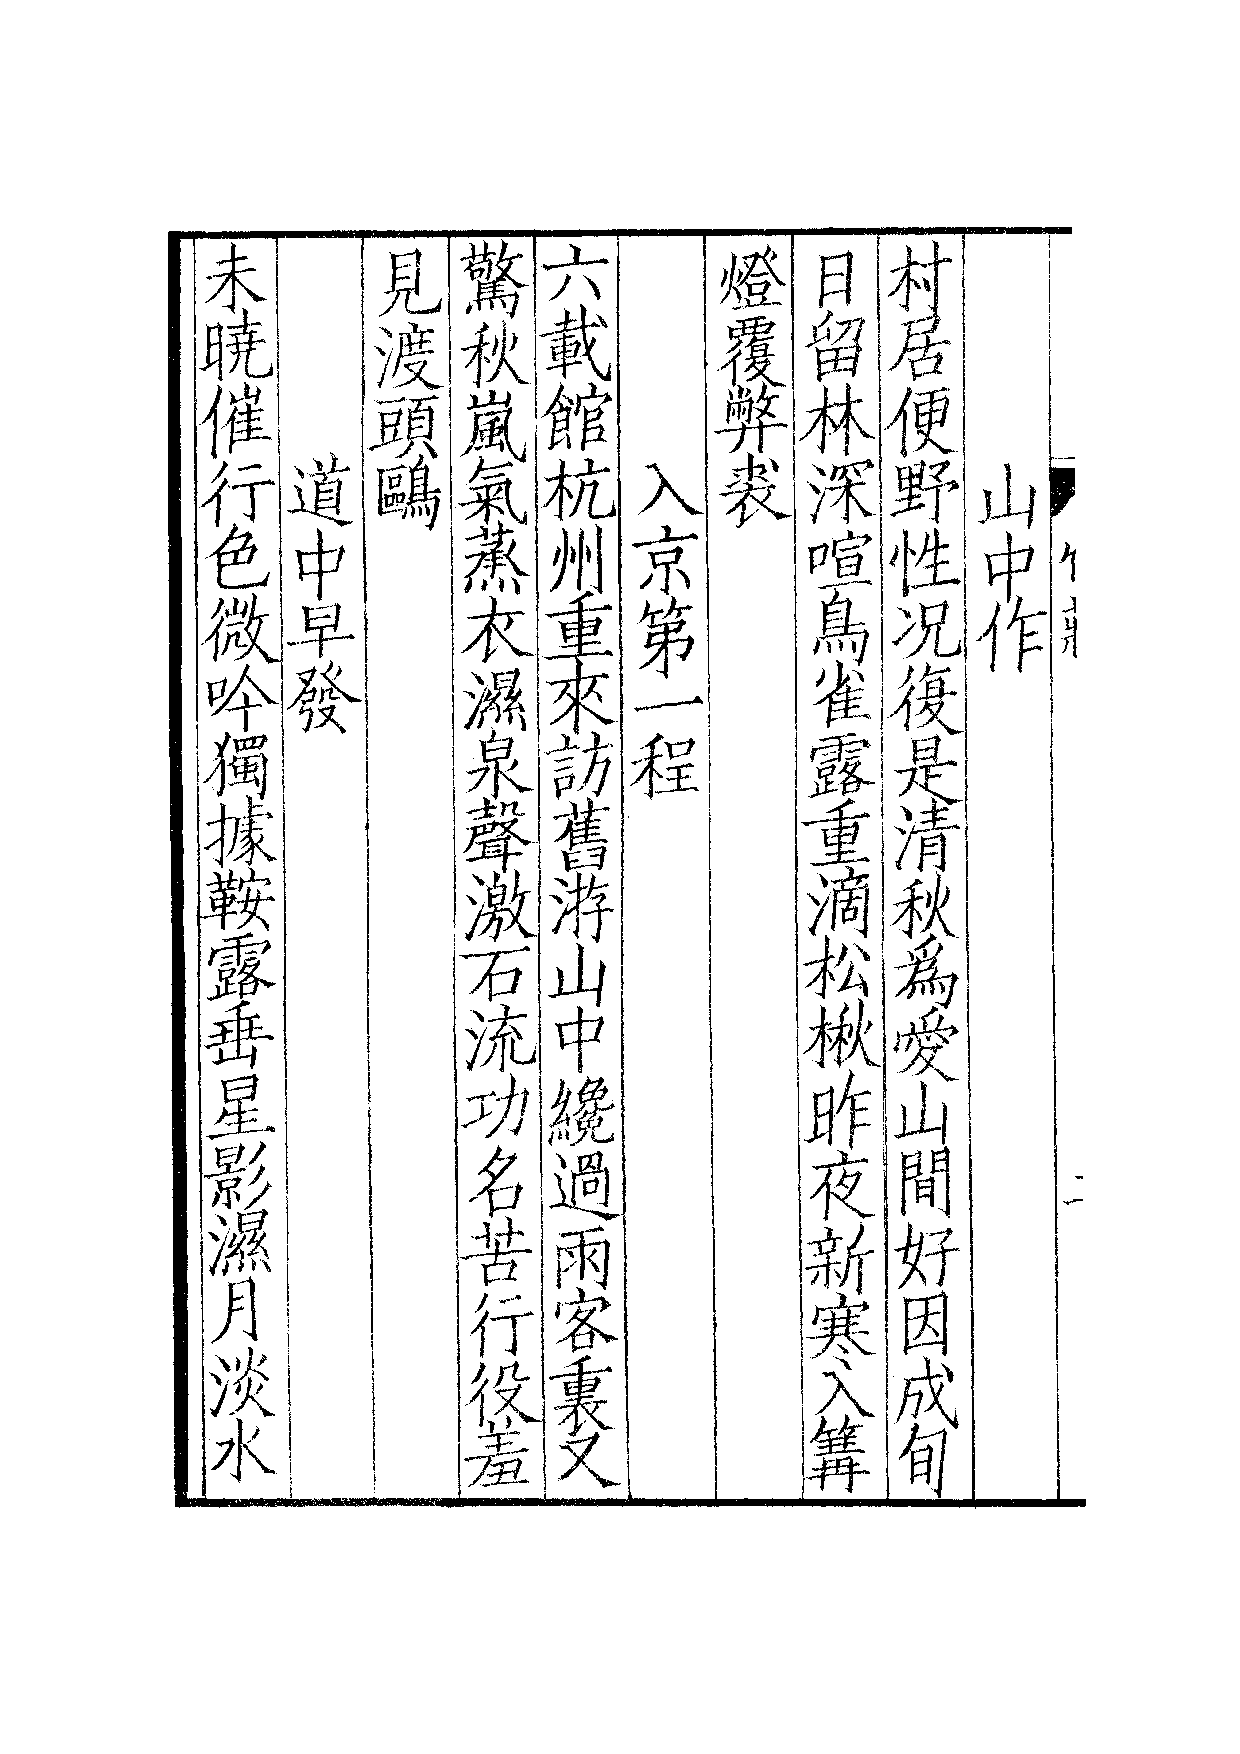 山中作
村居便野性况復是清秋爲愛山間好因成旬
日留林深喧鳥雀露重滴松楸昨夜新寒入篝
燈覆弊裘
入京第一程
六載館杭州重來訪舊游山中纔過雨客裏又
驚秋嵐氣蒸衣濕泉聲激石流功名苦行役羞
見渡頭鷗
道中早發
未曉催行色微吟獨據鞍露垂星影濕月淡水